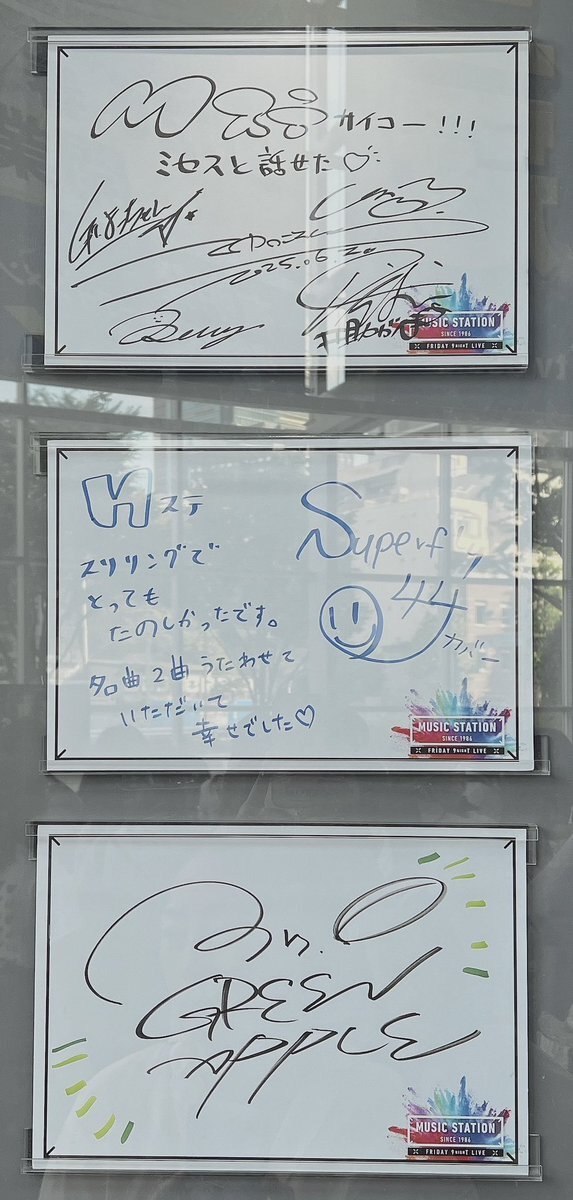 カイコー!!!
ミセスと話せた♡
2025.06.20
MUSIC STATION
SINCE 1986
FRIDAY 9NIGHT LIVE
Mステ
スリリングで
とっても
たのしかったです。
名曲2曲うたわせて
いただいて
幸せでした♡
Superfly
44
カバー
MUSIC STATION
SINCE 1986
FRIDAY 9NIGHT LIVE
Mrs.
GREEN
APPLE
MUSIC STATION
SINCE 1986
FRIDAY 9NIGHT LIVE